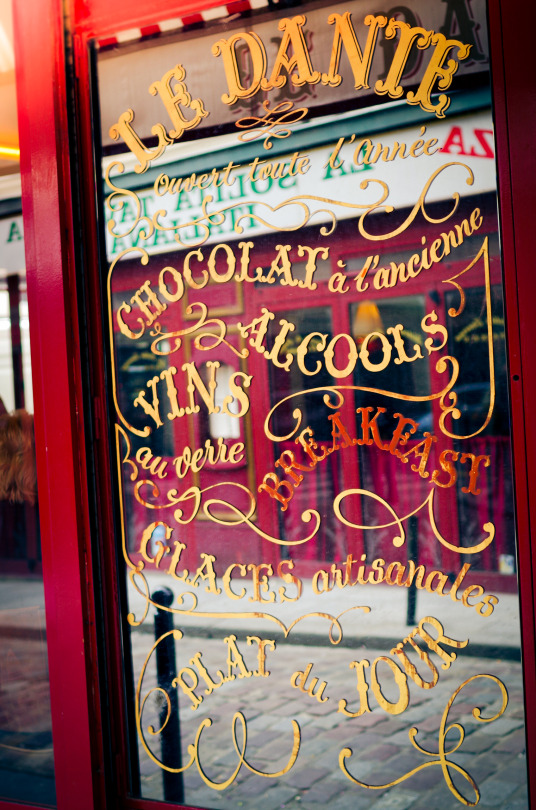 LE DANTE
Ouvert toute l'Année
CHOCOLAT à l'ancienne
ALCOOLS
VINS
au verre
BREAKEAST
GLACES artisanales
PLAT du JOUR